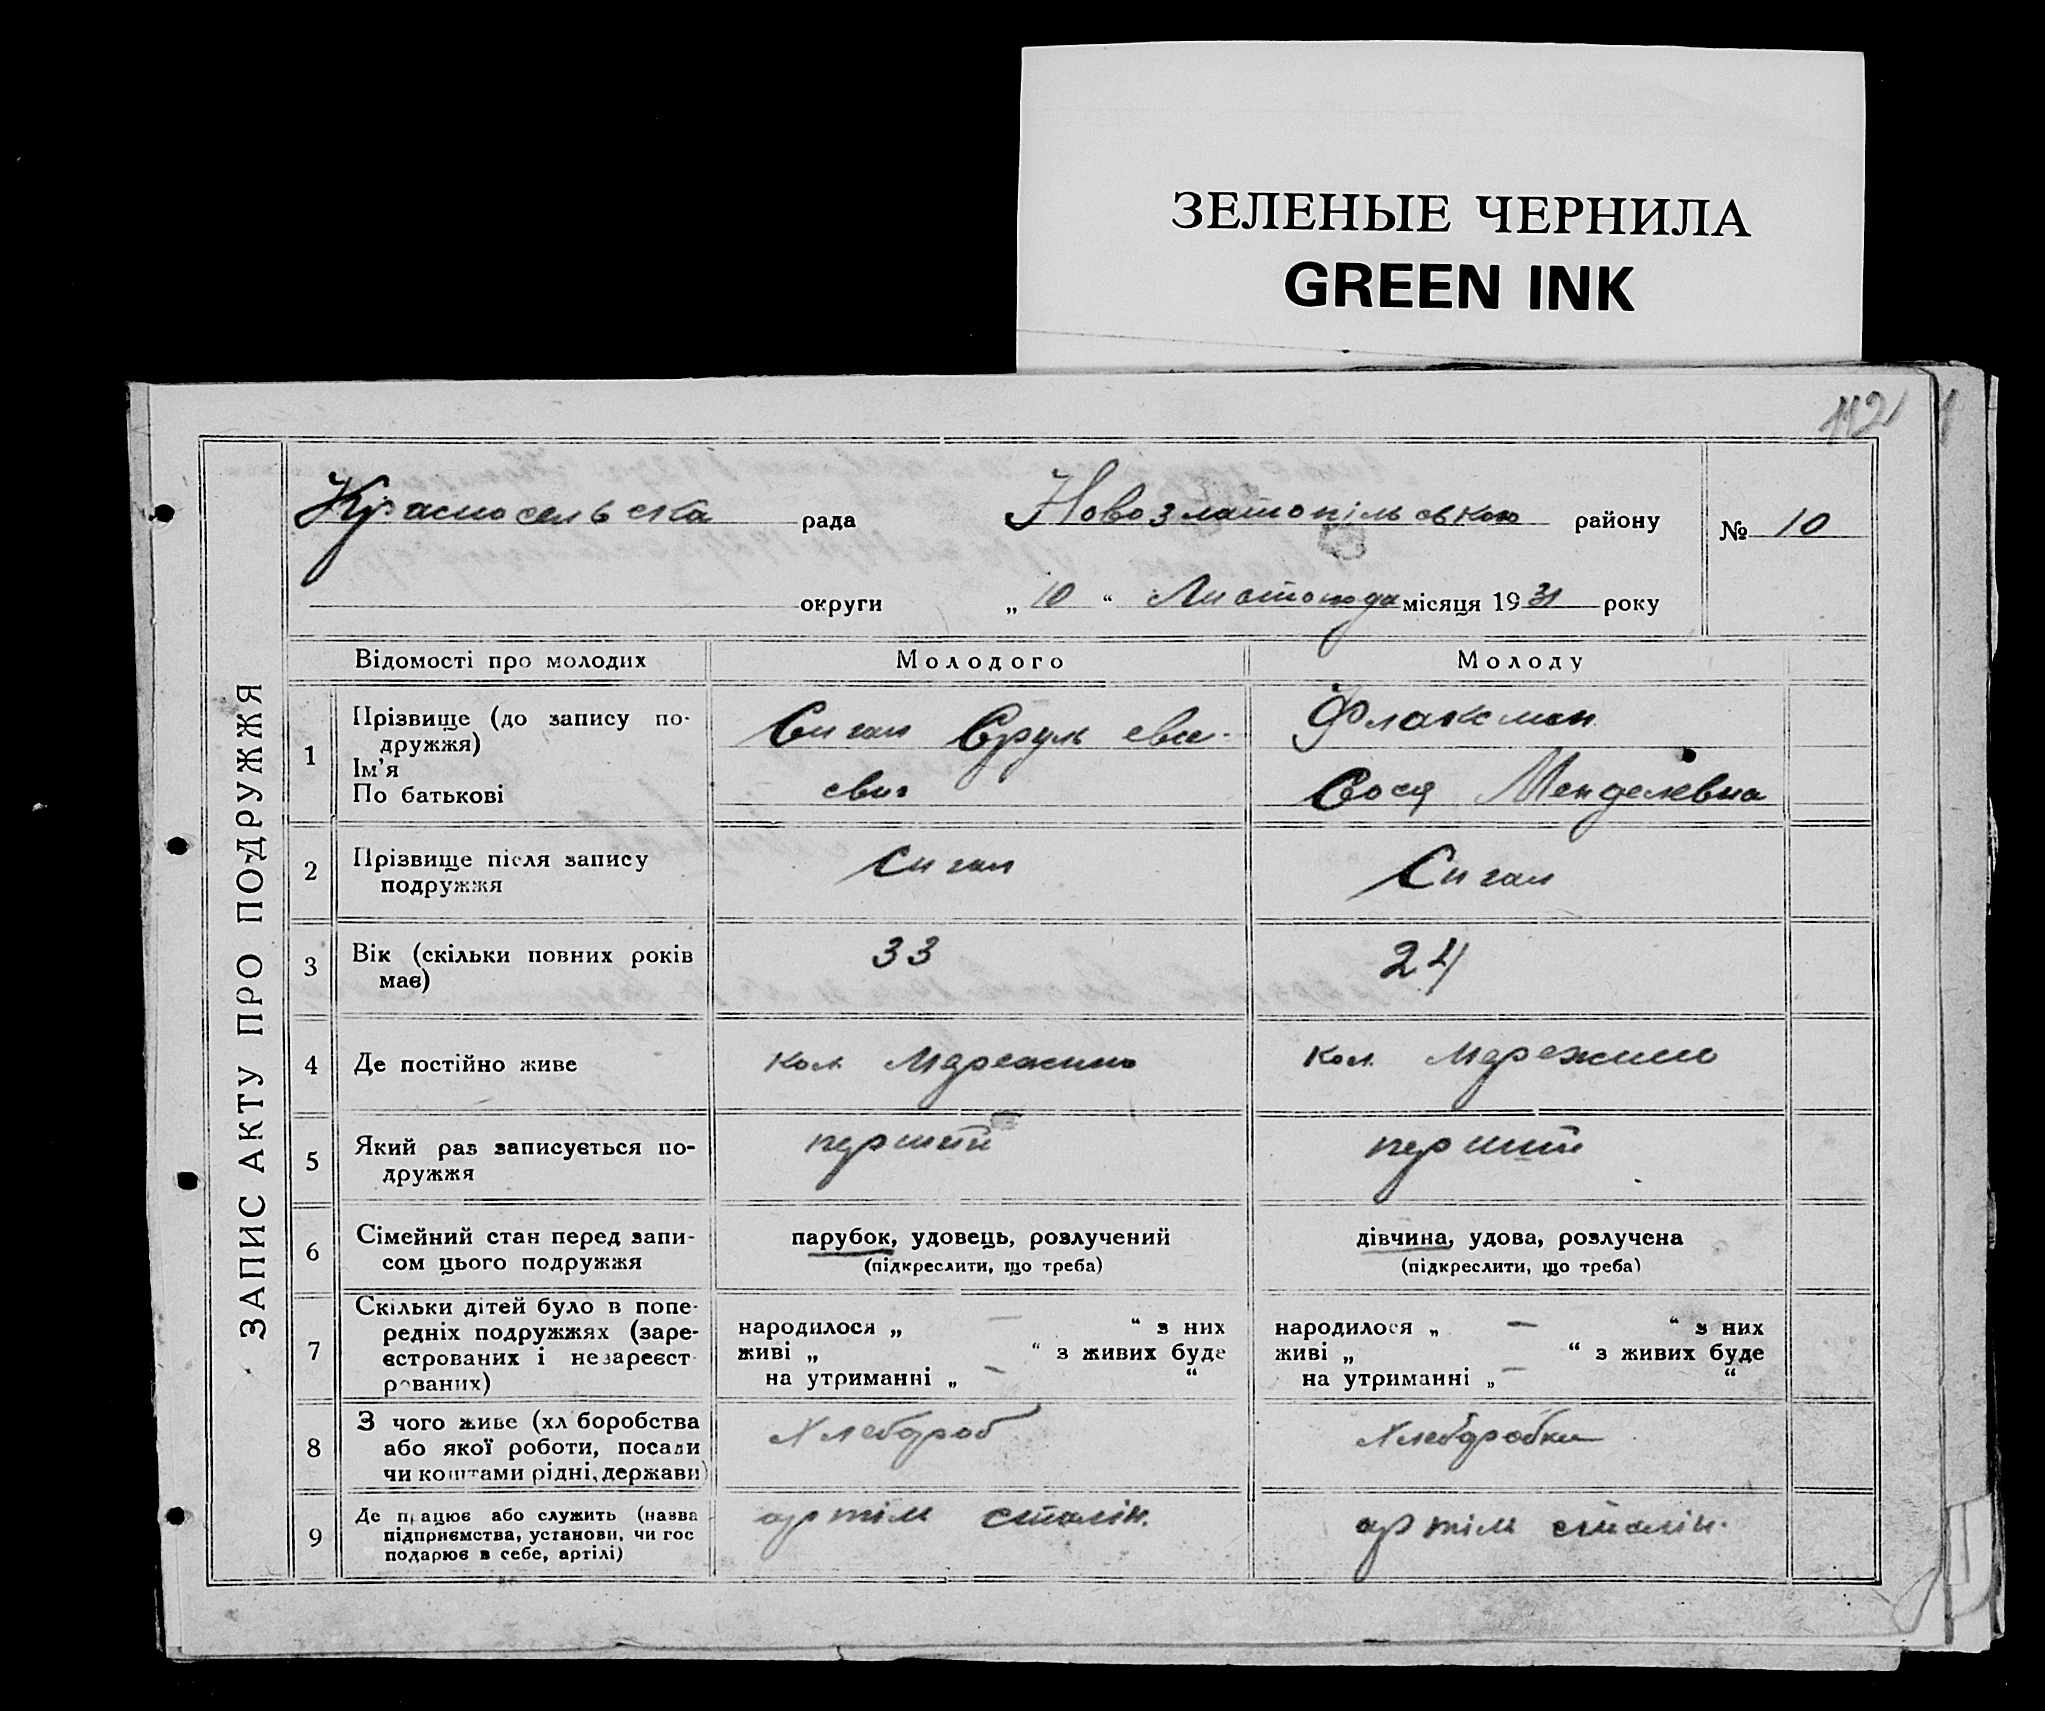 ЗЕЛЕНЫЕ ЧЕРНИЛА
GREEN INK
112
Красносельска рада Новозлатопільського району № 10
округи „ 10 “ Листопада місяця 1931 року
ЗАПИС АКТУ ПРО ПОДРУЖЖЯ
Відомості про молодих Молодого Молоду
1 Прізвище (до запису по-
дружжя)
Ім’я
По батькові
Сигал Сруль
Флаксман
Сося Менделевна
2 Прізвище після запису
подружжя
Сигал Сигал
3 Вік (скільки повних років
має)
33 24
4 Де постійно живе кол. Мережино кол. Мережино
5 Який раз записується по-
дружжя
перший перший
6 Сімейний стан перед запи-
сом цього подружжя
парубок, удовець, розлучений
(підкреслити, що треба)
дівчина, удова, розлучена
(підкреслити, що треба)
7 Скільки дітей було в попе-
редніх подружжях (заре-
єстрованих і незареєст-
рованих)
народилося „ — “ з них
живі „ “ з живих буде
на утриманні „ — “
народилося „ — “ з них
живі „ “ з живих буде
на утриманні „ — “
8 З чого живе (хліборобства
або якої роботи, посади
чи коштами рідні, держави)
Хлебороб Хлеборобка
9 Де працює або служить (назва
підприємства, установи, чи гос
подарює в себе, артілі)
артіль сталін. артіль сталін.